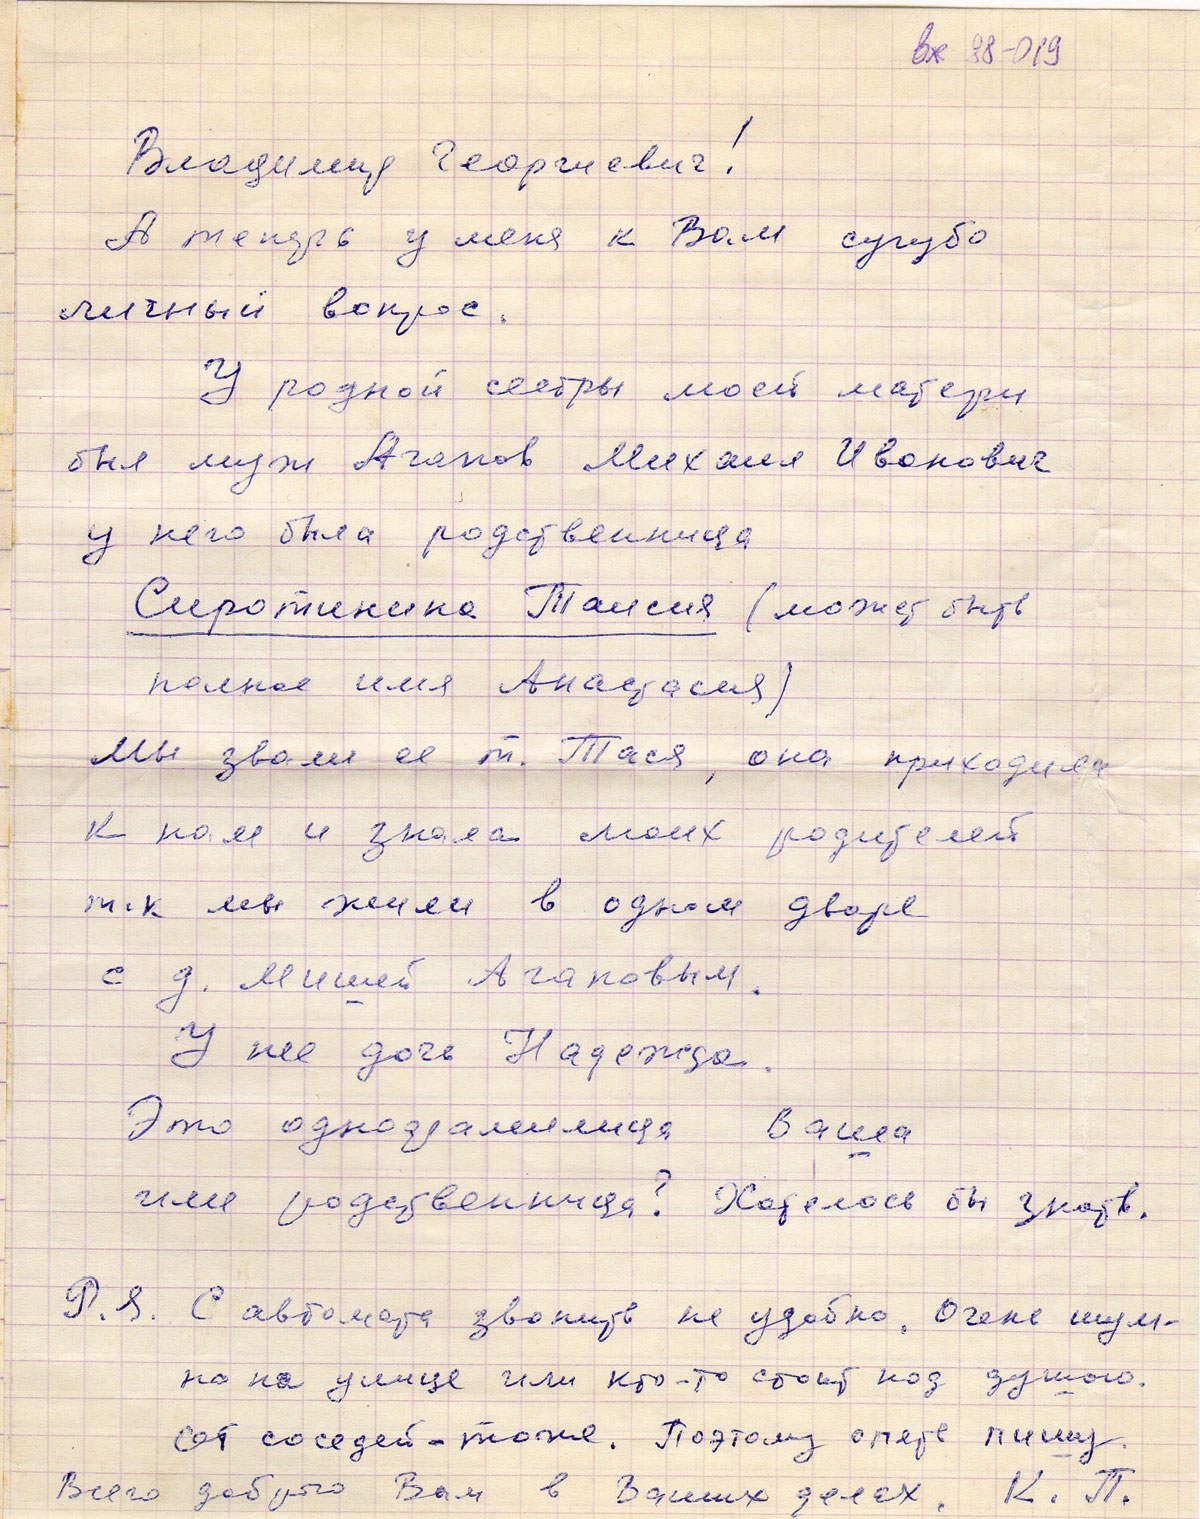 вх 98-019
Владимир Георгиевич!
А теперь у меня к Вам сугубо
личный вопрос.
У родной сестры моей матери
был муж Агапов Михаил Иванович
у него была родственница
Сиротинина Таисия (может быть
полное имя Анастасия)
Мы звали ее т. Тася, она приходила
к нам и знала моих родителей
т.к мы жили в одном дворе
с д. Мишей Агаповым.
У нее дочь Надежда.
Это однофамилица Ваша
или родственница? Хотелось бы знать.
P.S. С автомата звонить не удобно. Очень шум-
но на улице или кто-то стоит над душою.
От соседей - тоже. Поэтому опять пишу.
Всего доброго Вам в Ваших делах. К. П.